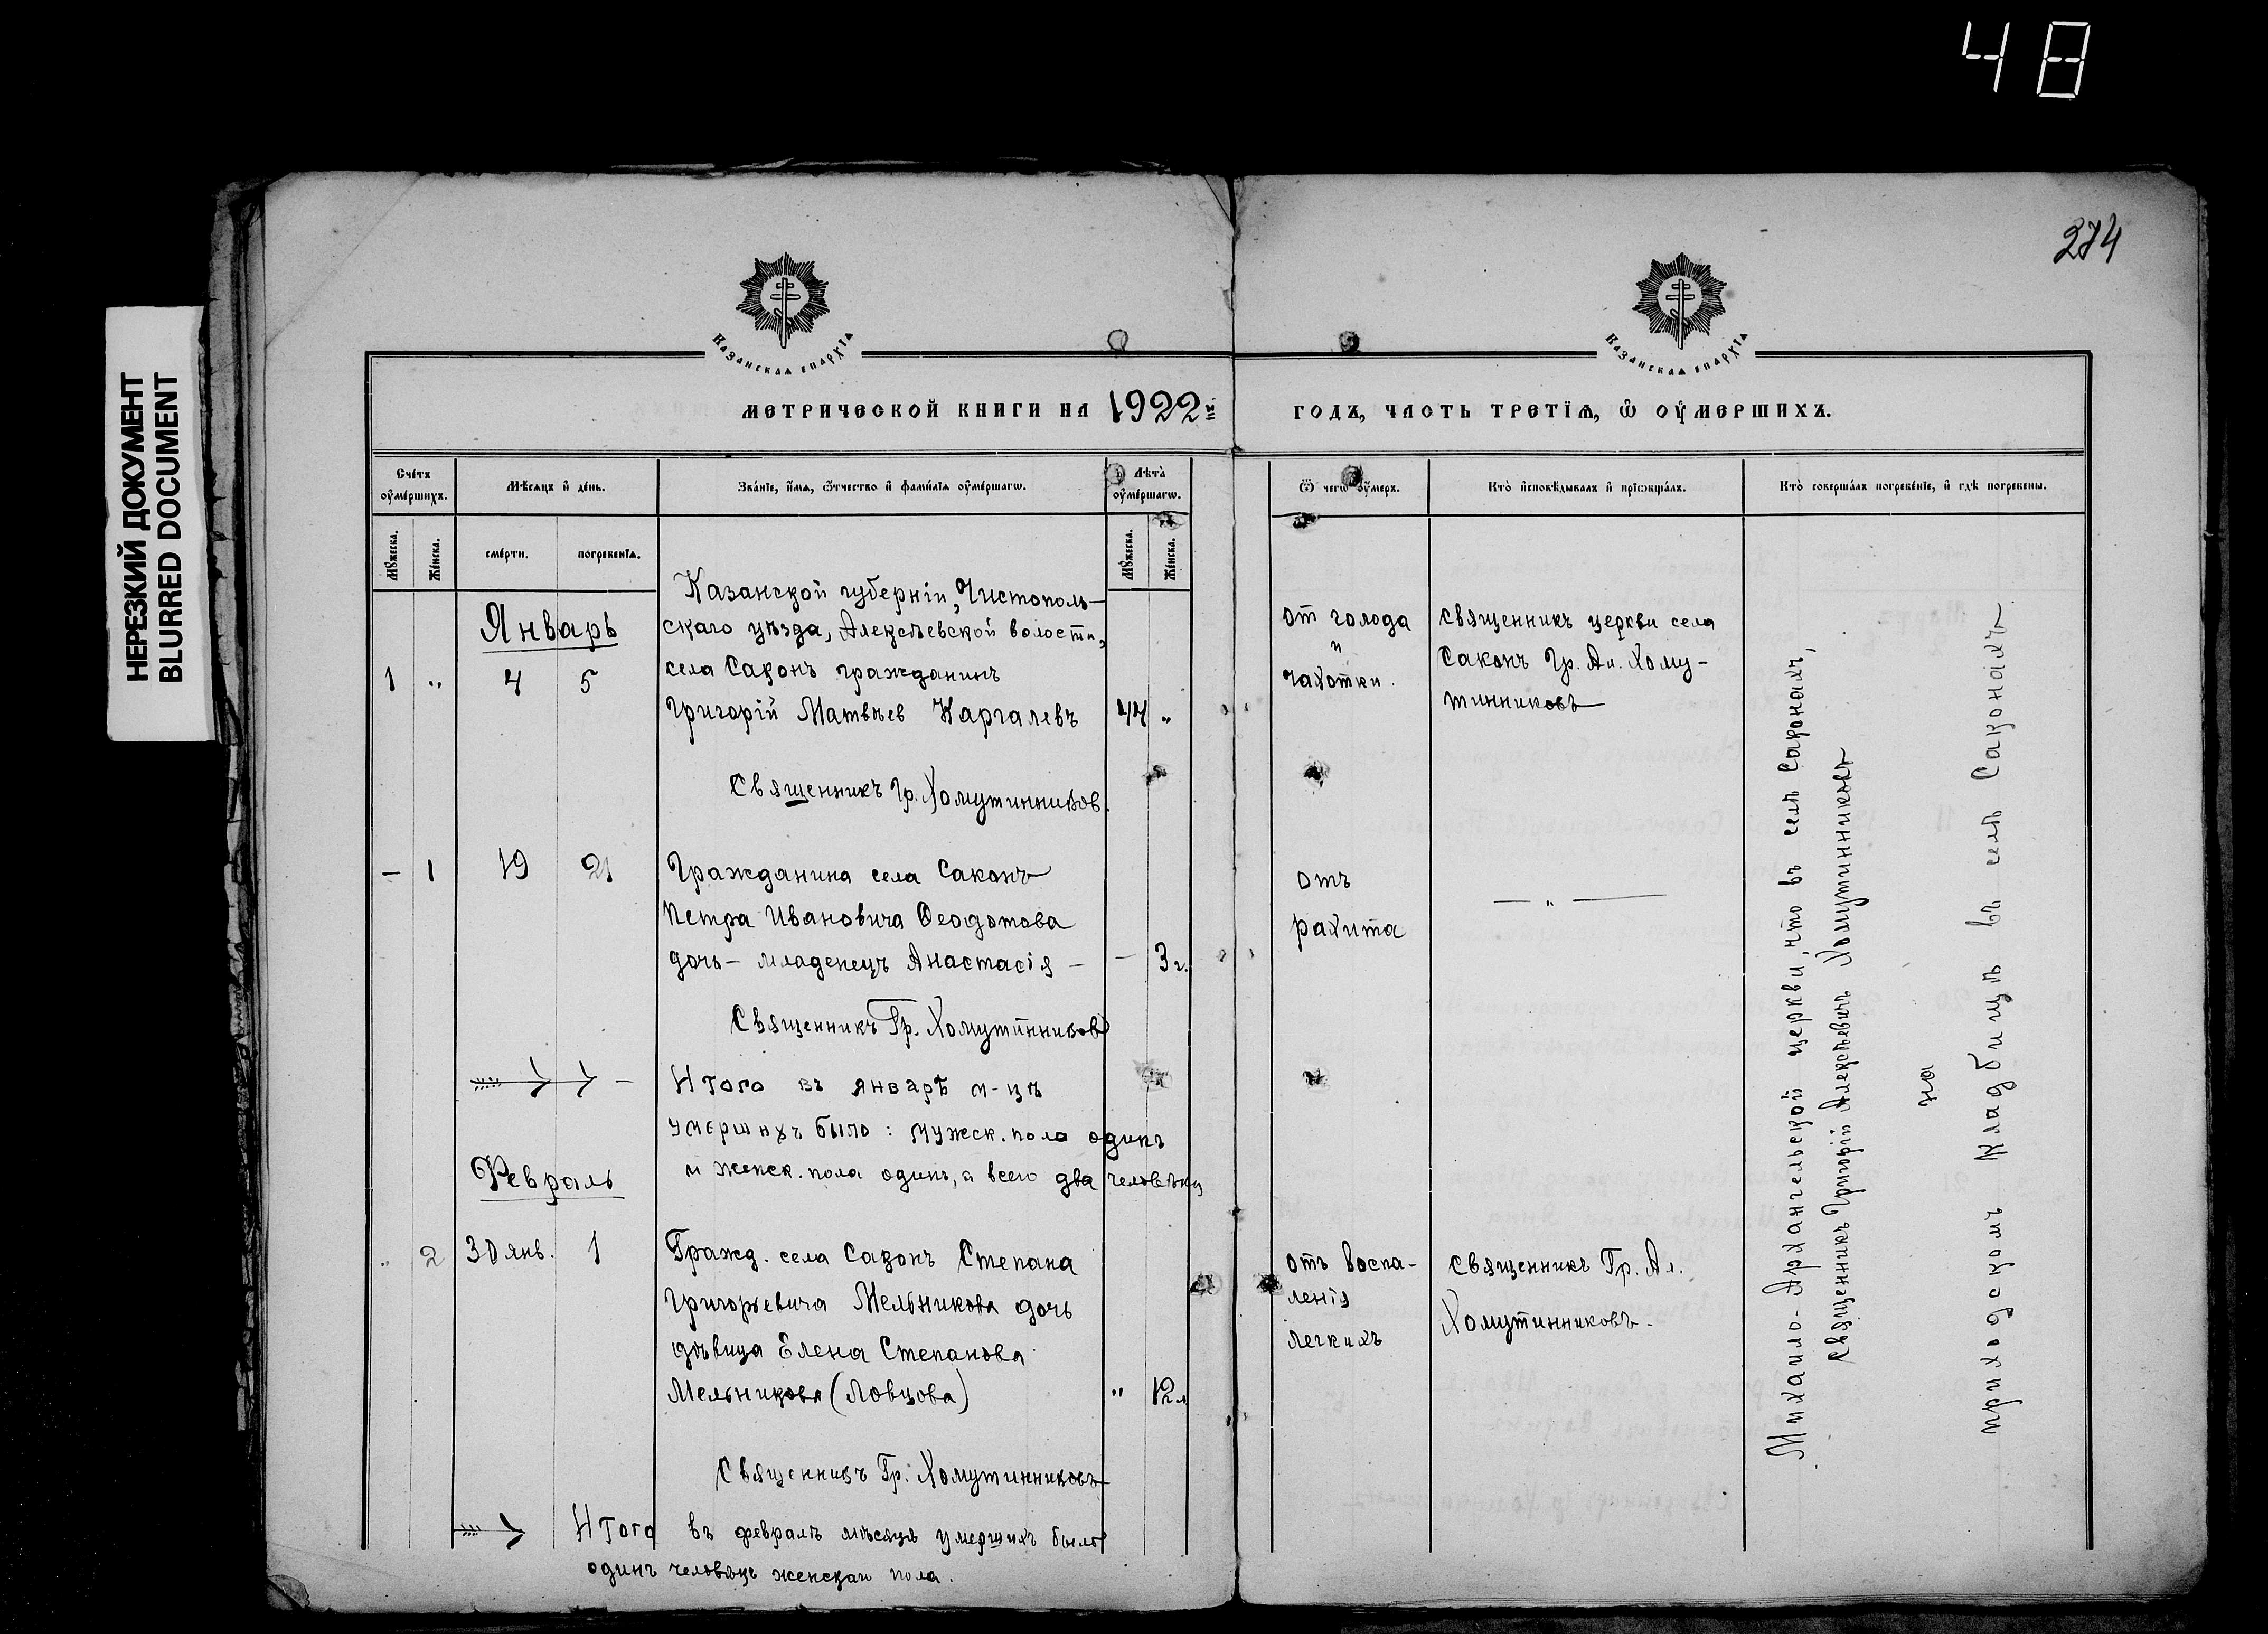 48
НЕРЕЗКИЙ ДОКУМЕНТ
BLURRED DOCUMENT
274
Казанская епархїа
Казанская епархїа
МЕТРИЧЕСКОЙ КНИГИ НА 1922й
ГОДЪ, ЧАСТЬ ТРЕТЇѦ, Ѿ ОУМЕРШИХЪ.
Счетъ оумершихъ.
Мѣсяцъ и день.
Званїе, имѧ, ѿчество и фамилїѧ оумершагѡ.
Лѣта оумершагѡ.
Ѿ чегѡ оумеръ.
Кто исповѣдывалъ и прїѡбщалъ.
Кто совершалъ погребенїе, и гдѣ погребены.
Мужеска.
Женска.
смерти.
погребенїѧ.
Мужеска.
Женска.
Январь
1 " 4 5
Казанской губерніи, Чистополь-
скаго уѣзда, Алексѣевской волости,
села Саконъ гражданинъ
Григорій Матвѣев Каргалевъ 44 "
от голода
и
чахотки.
священникъ церкви села
Саконъ Гр. Ал. Хому-
тинниковъ
Священникъ Гр. Хомутинников.
— 1 19 21
Гражданина села Саконъ
Петра Ивановича Ѳеодотова
дочь – младенецъ Анастасія – — 3 г.
отъ
рахита
— " —
Священникъ Гр. Хомутинников
Итого въ январѣ м-цѣ
умершихъ было: мужск. пола одинъ
и женск. пола одинъ, а всего два человѣка
Февраль
" 2 30 янв. 1
Гражд. села Саконъ Степана
Григорьевича Мельникова дочь
дѣвица Елена Степанова
Мельникова (Ловцова) " 12 л
отъ воспа-
ленія
легкихъ
священникъ Гр. Ал.
Хомутинниковъ.
Священникъ Гр. Хомутинниковъ
Итого въ февралѣ мѣсяцѣ умершихъ было
одинъ человѣкъ женскаго пола.
Михаило-Архангельской церкви, что въ селѣ Саконахъ,
священникъ Григорій Алексѣевичъ Хомутинниковъ
на
приходскомъ кладбищѣ въ селѣ Саконахъ